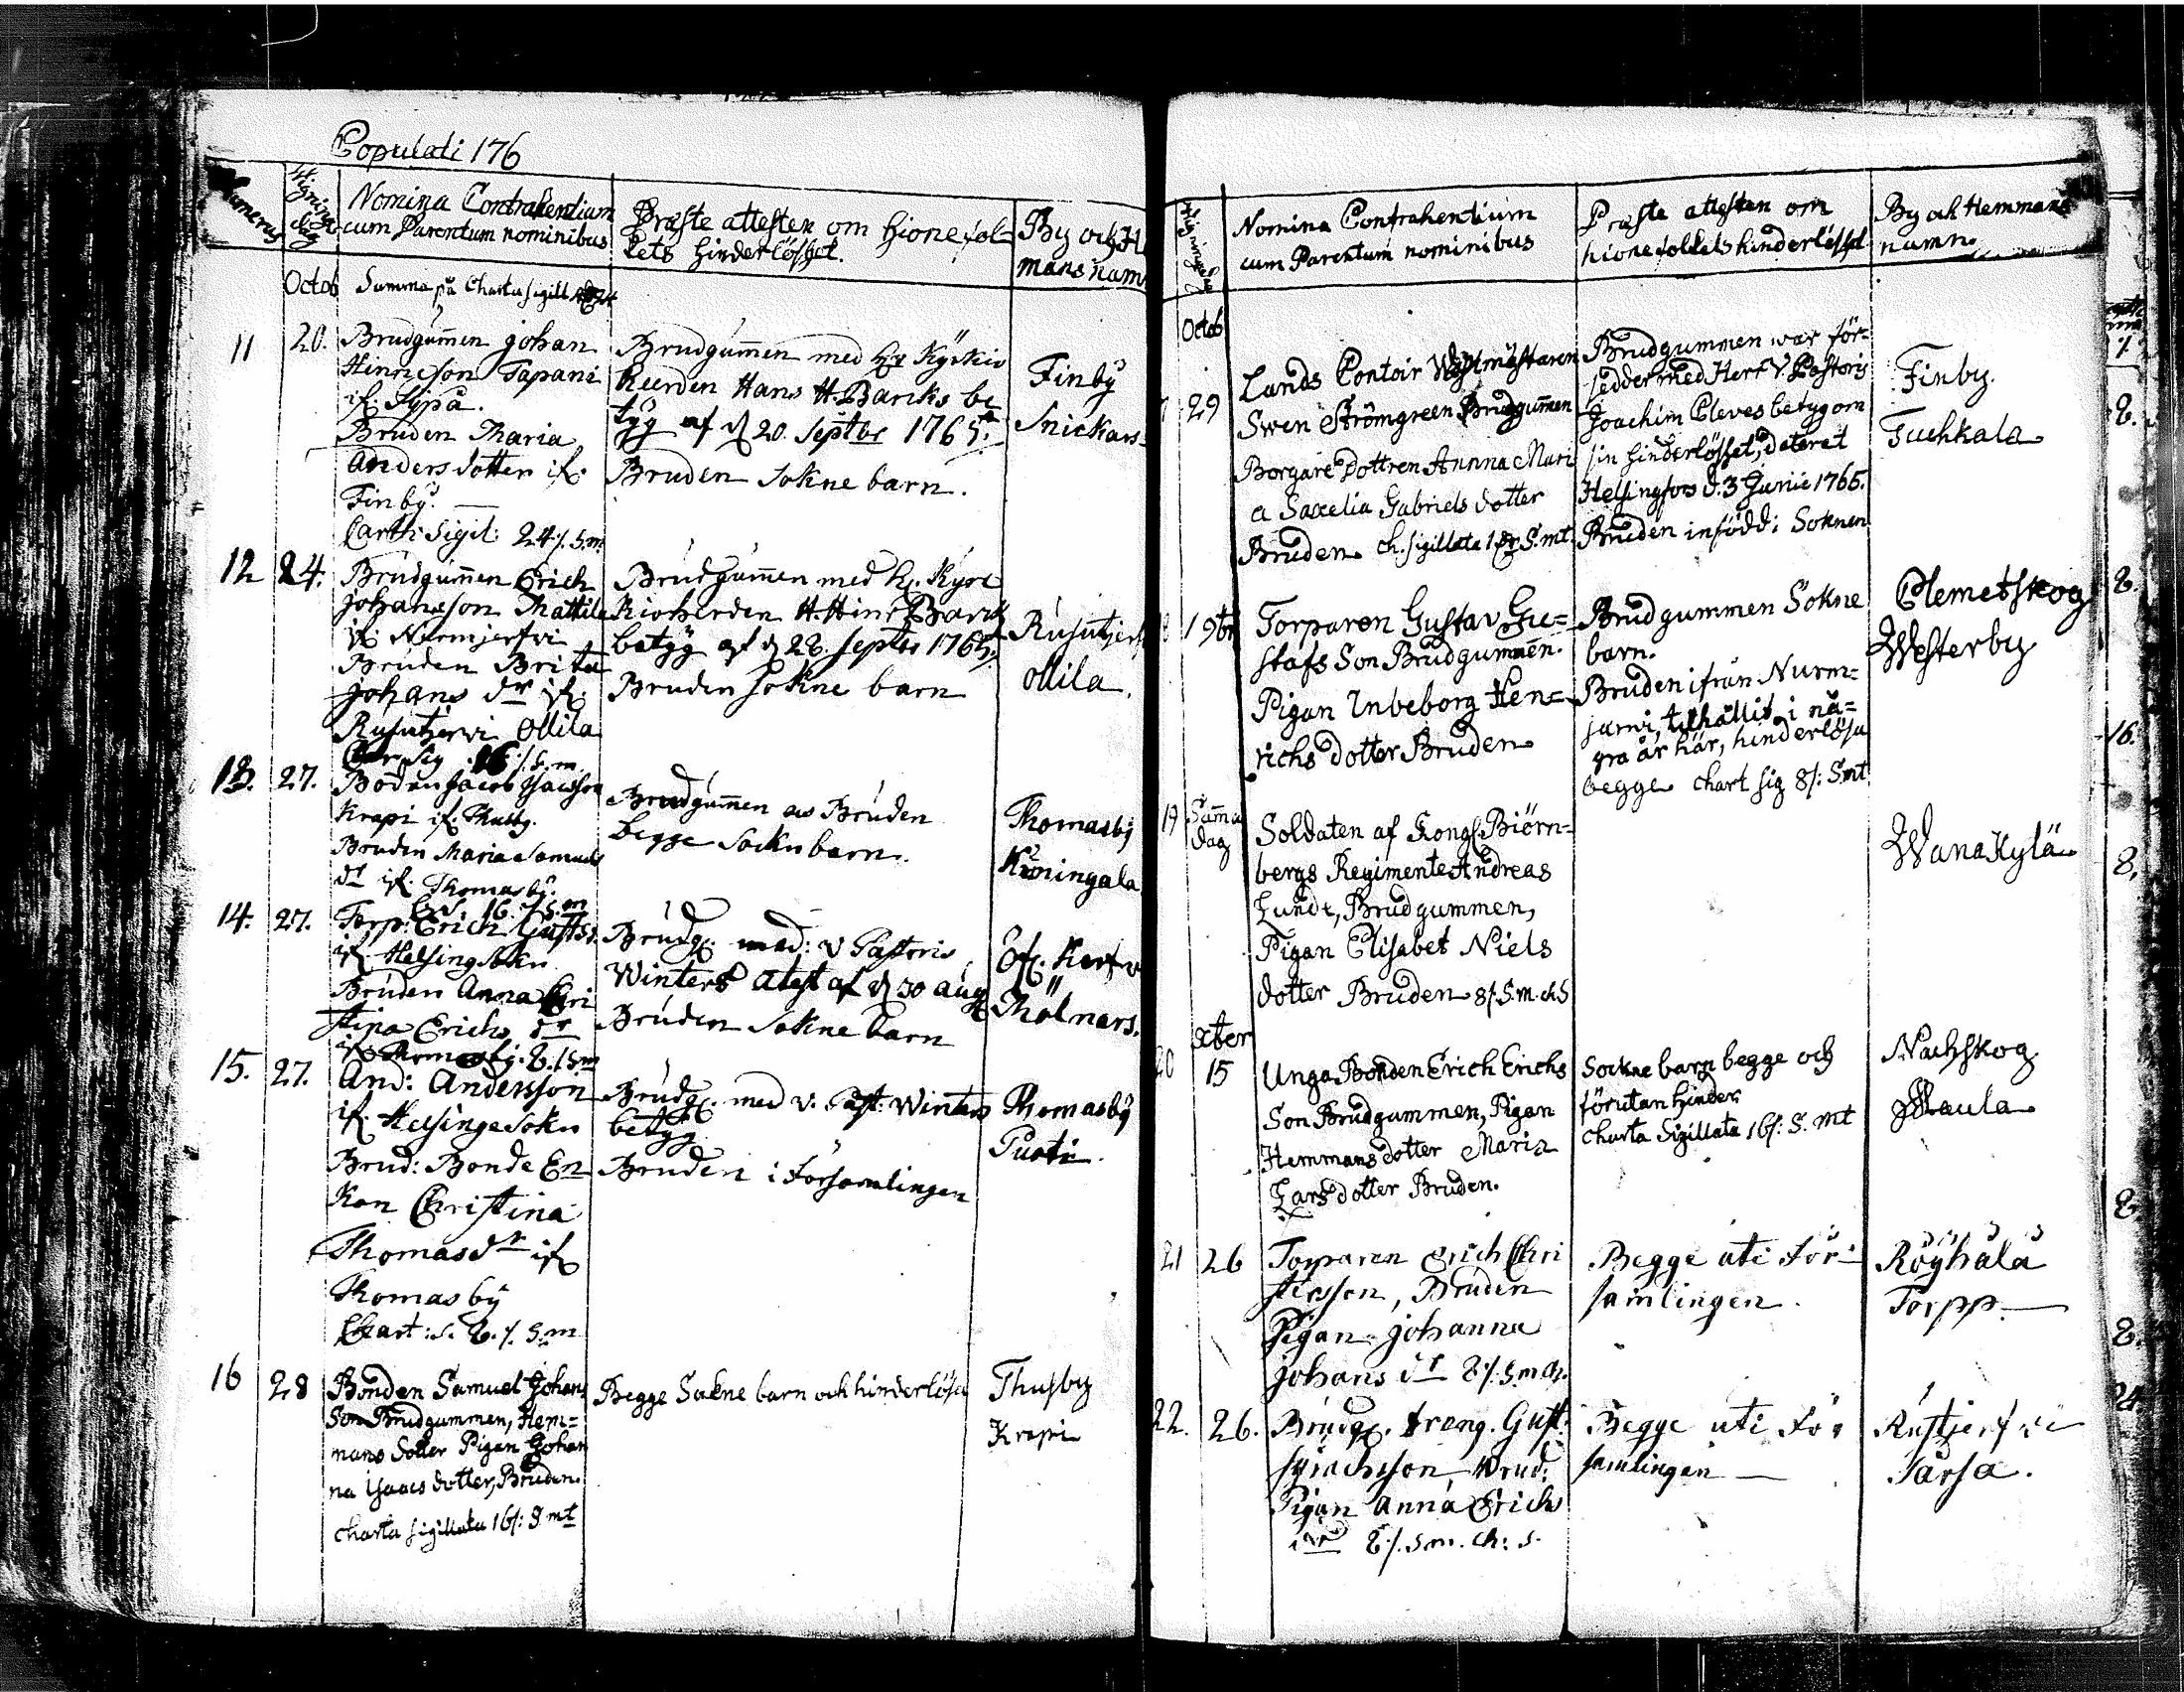 Copulati 176
Numerus
Wigningz
dag
Nomina Contrahentium
cum Parentum nominibus
Præste attesten om hionefol
kets hinderlöshet.
By och H
mans namn
Octob
Summa på Charta sigill
11
20.
Brudgumen johan
Hinricson Tapani
if. Sypä.
Bruden Maria
anders dotter if.
Finby.
Carth: Sigil: 24 /. S.m.
Brudgumen med
Heerden Hans H. Barcks be
tyg af d 20. Septbr 1765.
Bruden Sokne barn.
Finby
Snickars
12
24.
Brudgumen Erich
johansson Mattila
if. Nurmjerfvi
Bruden Brita
johans dr if.
Rusutjervi Ollila
Char Sig. 16 /. S.m.
Brudgumen med
betyg af d 28. septbr 1765.
Bruden Sokne barn
Rusutjerf
Ollila.
13.
27.
Bonden Jacob Isacsson
Krapi if. Thusby.
Bruden Maria Samuels
dr if. Thomasby.
16. /. S.m
Brudgumen as Bruden
begge Sockn barn.
Thomasby
Koningala
14.
27.
Torp: Erich Gustss.
if Helsing Sokn
Bruden Anna Chri
stina Erichs dr
if Thomasby. 8. /. S.m
Brudg. med: V Pastoris
Winters atest af d 30 aug
Bruden Sokne barn
Öf. Kerfv
Mölnars.
15.
27.
And: Andersson
if. Helsinge Sokn
Brud: Bonde En
kan Christina
Thomasdr if
Thomasby
Chart: s. 8. /. S.m
Brudg. med v. Past: Winters
betyg
Bruden i Församlingen
Thomasby
Pusti.
16
28
Bonden Samuel Johans
Son Brudgummen, Hem=
mans dotter Pigan Johan
na Isaacs dotter, Bruden.
charta sigillata 16 /: S. mt
Begge Sokne barn och hinderlösa
Thusby
Krapi
Nomina Contrahentium
cum Parentum nominibus
Præste attesten om
hionefolkets hinderlöshet
By och Hemmans
namn
Octob
29
Lands Contoir Wagtmästaren
Swen Strömgreen Brudgumen
Borgare Dottren Annna Mari
a Saxelia Gabriels dotter
Bruden. ch. sigillata 1 S. mt.
Brudgummen war för-
sedder med Herr V Pastoris
Joachim Cleves betyg om
sin hinderlöshet, dateret
Helsingfors d. 3 Junii 1765.
Bruden infödd i Soknen
Finby.
Tuchkala
1 9br
Torparen Gustav Gu=
stafs Son Brudgummen.
Pigan Inbeborg Hen=
richs dotter Bruden
Brudgummen Sokne
barn.
Bruden ifrån Nurm=
jarwi, tilhållit i nå=
gra år här, hinderlösa
begge chart sig 8 /: Smt
Clemetskog
Westerby
19
Samma
dag
Soldaten af Kongl. Biörn=
bergs Regimente Andreas
Lundt, Brudgummen,
Pigan Elisabet Niels
dotter Bruden 8 /. S. m. ch S
Wanakylä
20
xber
15
Unga Bonden Erich Erichs
Son Brudgummen, Pigan
Hemmans dotter Maria
Lars dotter Bruden.
Sockne barn begge och
förutan hinder.
charta Sigillata 16 /: S. mt
Nachskog.
Paula
21
26
Torparen Erich Chri
stersson, Bruden
Pigan johanna
johans dr 8 /. S.m ch.
Begge uti För
samlingen.
Röyhälä
Torpp.
22.
26.
Brudg. dreng. Gust.
Brud:
Pigan anna Erichs
dr 8 /. S m. ch: s.
Begge uti För
samlingen
Rustjerfvi
Järfa.
8.
8.
16.
8.
8.
8.
24